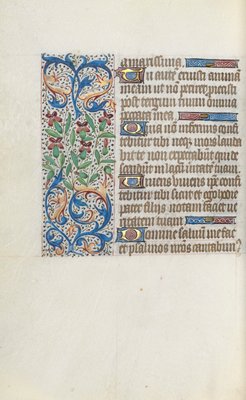 amarissima
Tu aute͂ eruisti animã
meam ut nõ periret proiecisti
post tergum tuum omnia
peccata mea
Quia nõ infernus confi
tebitur tibi neq; mors lauda
bit te non expectabunt qui de
scendunt in lacum veritatẽ tuam
Viuens viuens ip̃e confi
tebitur tibi sicut et ego hodie
pater filijs notam faciet ue
ritatem tuam
Domine saluũ me fac
et psalmos nr̃os cantabim9